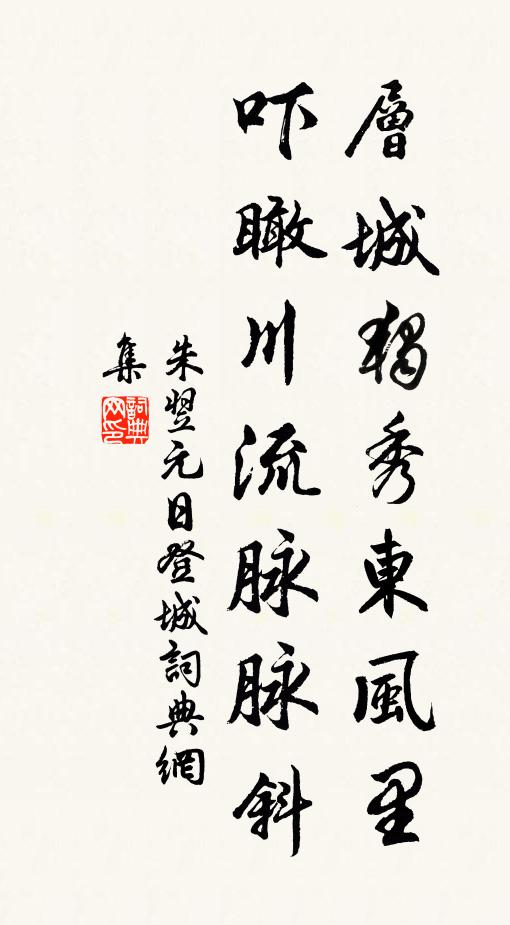 層城獨秀東風里
吓瞰川流脉脉斜
朱翌元日登城詞典網
集
詞典
网印